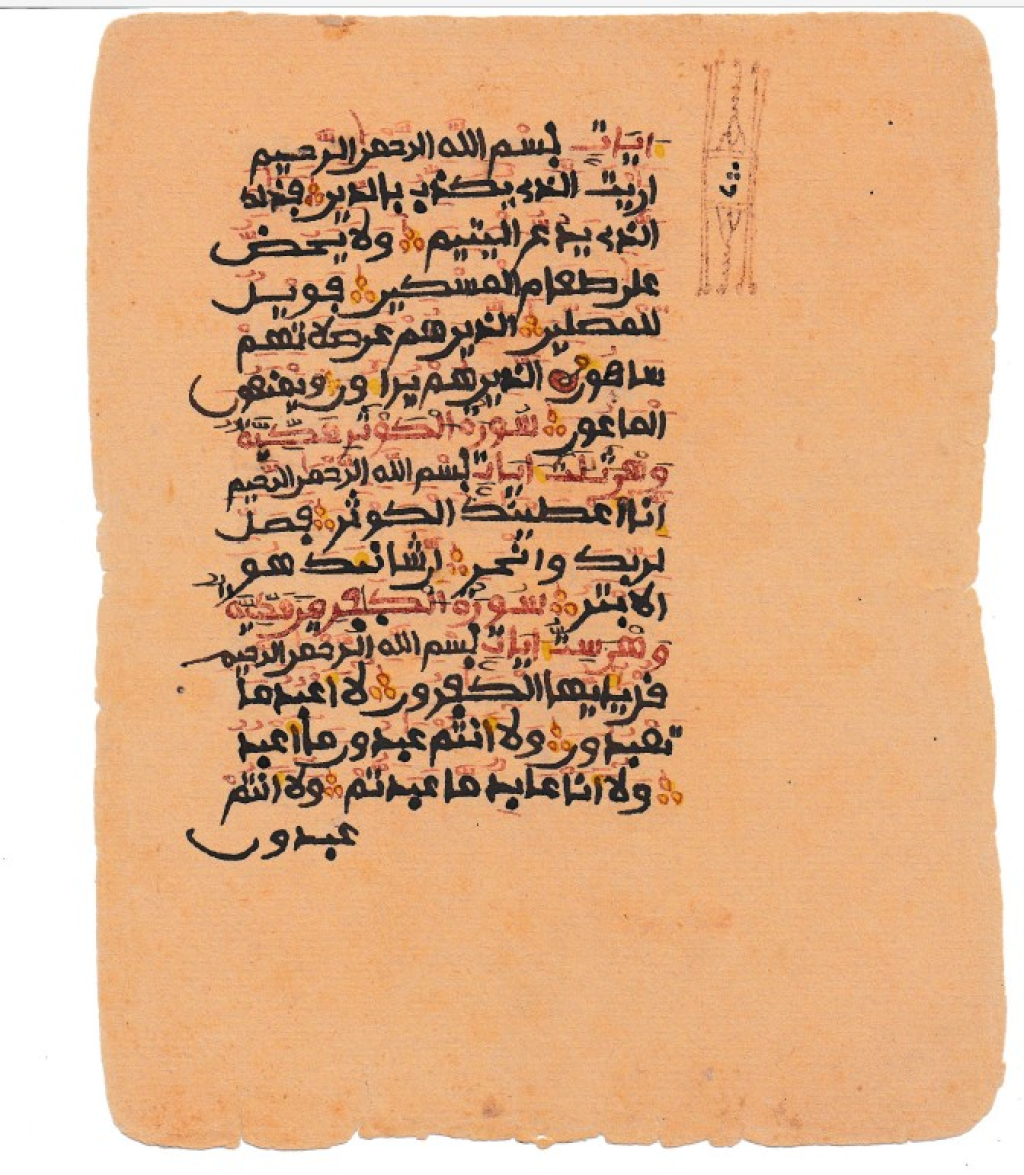 ايات بسم الله الرحمن الرحيم
اريت الذي يكذب بالدين فذلك
الذي يدع اليتيم ولا يحض
على طعام المسكين فويل
للمصلين الذين هم عن صلاتهم
ساهون الذين هم يراءون ويمنعون
الماعون سورة الكوثر مكية
وهي ثلث ايات بسم الله الرحمن الرحيم
انا اعطينك الكوثر فصل
لربك وانحر ان شانئك هو
الابتر سورة الكفرين مكية
وهي ست ايات بسم الله الرحمن الرحيم
قل يايها الكفرون لا اعبد ما
تعبدون ولا انتم عبدون ما اعبد
ولا انا عابد ما عبدتم ولا انتم
عبدون